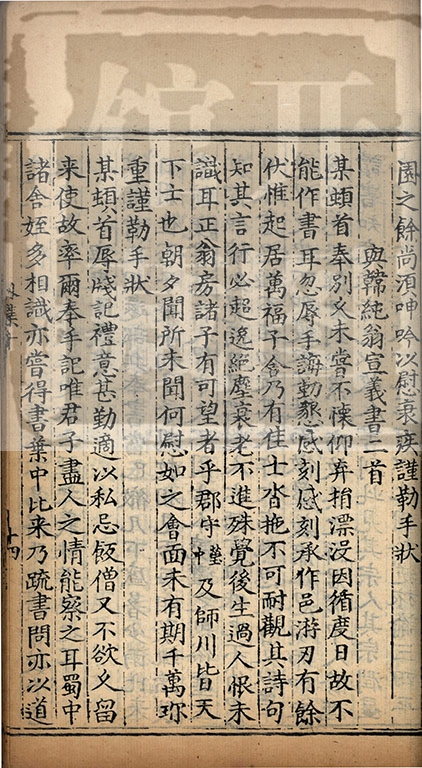 園之餘尚須呻吟以慰衰疾謹勒手狀
與韓純翁宣義書二首
某頓首奉別久未嘗不懷仰弃捐漂没因循度日故不
能作書耳忽辱手誨勤懇感刻感刻承作邑游刃有餘
伏惟起居萬福子舍乃有佳士沓拖不可耐觀其詩句
知其言行必超逸絶塵衰老不進殊覺後生過人恨未
識耳正翁房諸子有可望者乎郡守瑩中及師川皆天
下士也朝夕聞所未聞何慰如之會面未有期千萬珎
重謹勒手狀
某頓首辱牋記禮意甚勤適以私忌飯僧又不欲久留
來使故率爾奉手記唯君子盡人之情能察之耳蜀中
諸舍姪多相識亦嘗得書葉中比来乃疏書問亦以道
十四